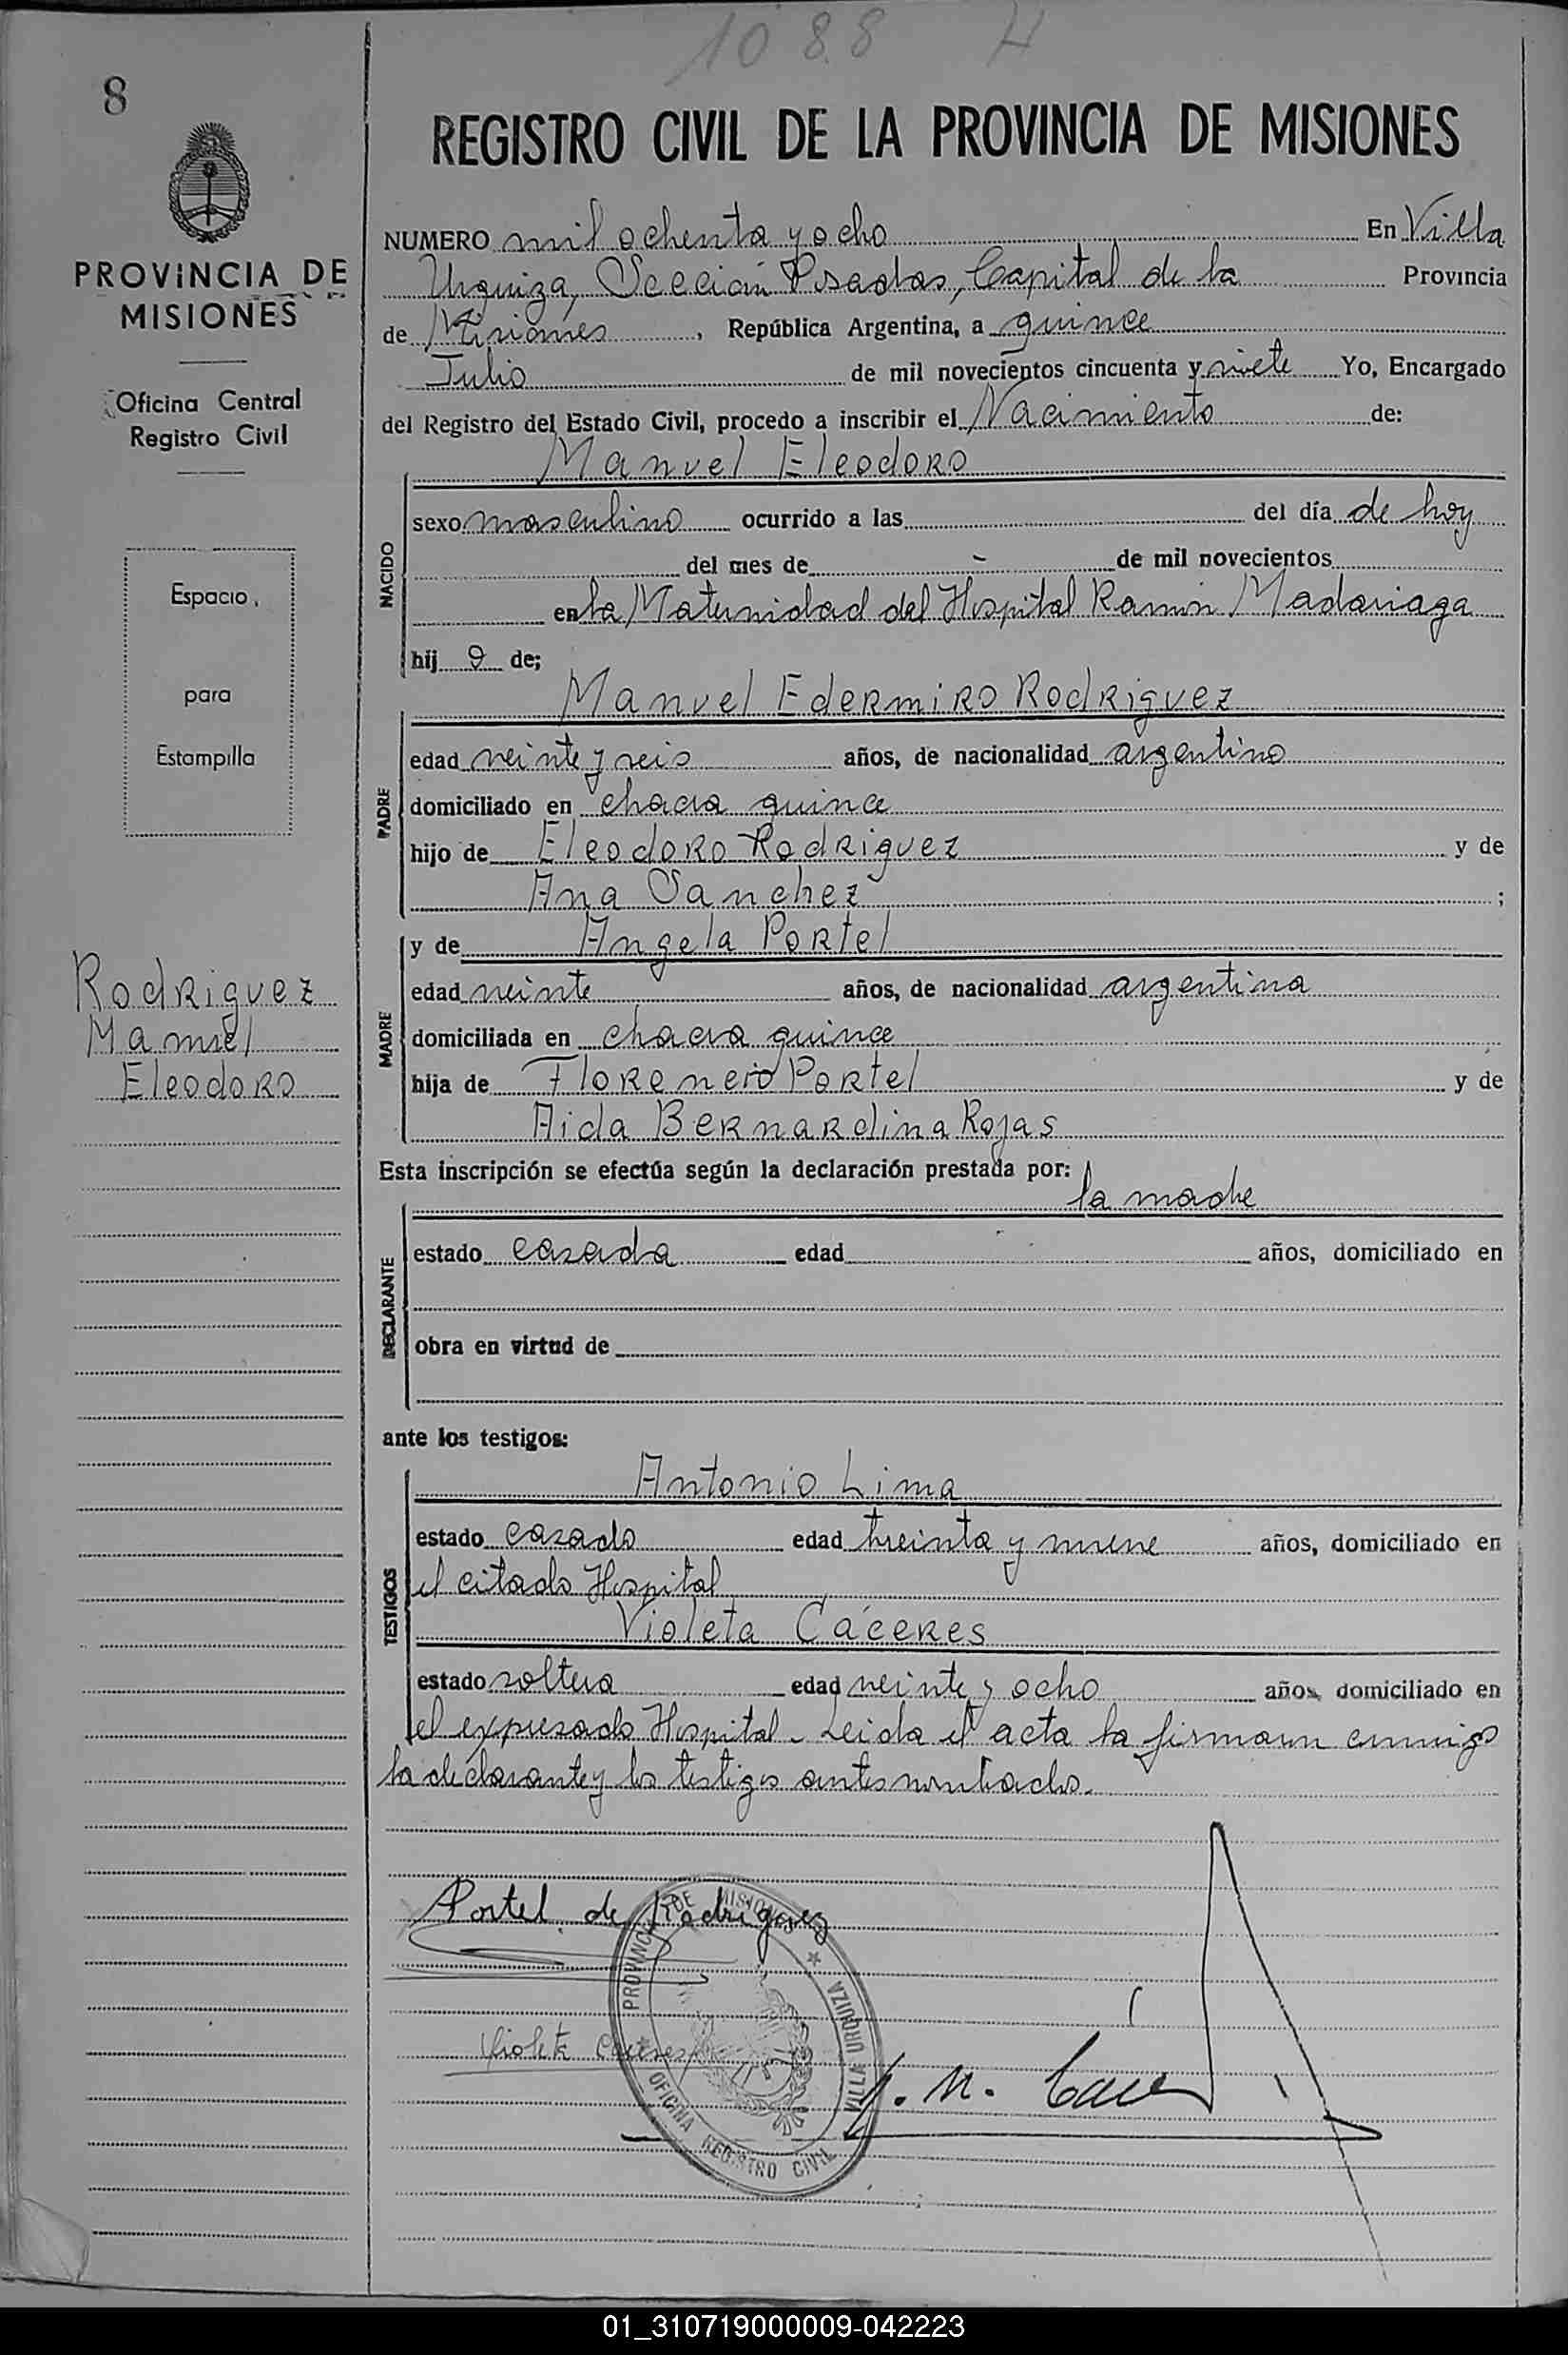 1088 H
8
REGISTRO CIVIL DE LA PROVINCIA DE MISIONES
PROVINCIA DE
MISIONES
Oficina Central
Registro Civil
Espacio
para
Estampilla
Rodriguez
Manuel
Eleodoro
NUMERO mil ochenta y ocho En Villa
Urquiza, Sección Posadas, Capital de la Provincia
de Misiones, República Argentina, a quince
Julio de mil novecientos cincuenta y siete Yo, Encargado
del Registro del Estado Civil, procedo a inscribir el Nacimiento de:
Manuel Eleodoro
NACIDO
sexo masculino ocurrido a las del día de hoy
del mes de - de mil novecientos
en la Maternidad del Hospital Ramón Madariaga
hij o de;
Manuel Edermiro Rodriguez
PADRE
edad veinte y seis años, de nacionalidad argentino
domiciliado en chacra quince
hijo de Eleodoro Rodriguez y de
Ana Sanchez ;
y de Angela Portel
MADRE
edad veinte años, de nacionalidad argentina
domiciliada en chacra quince
hija de Florencio Portel y de
Aida Bernardina Rojas
Esta inscripción se efectúa según la declaración prestada por:
la madre
DECLARANTE
estado casada edad años, domiciliado en
obra en virtud de
ante los testigos:
Antonio Lima
TESTIGOS
estado casado edad treinta y nueve años, domiciliado en
el citado Hospital
Violeta Cáceres
estado soltera edad veinte y ocho años, domiciliado en
el expresado Hospital - Leida el acta la firmaron conmigo
la declarante y los testigos antes nombrados.
Portel de Rodriguez
Violeta Cáceres
PROVINCIA DE MISIONES
VILLA URQUIZA
OFICINA REGISTRO CIVIL
01_310719000009-042223